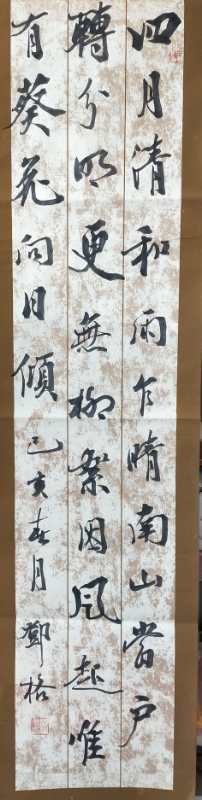 四月清和雨乍晴南山當户
轉分明更無柳絮因風起唯
有葵花向日傾己亥春月鄧格